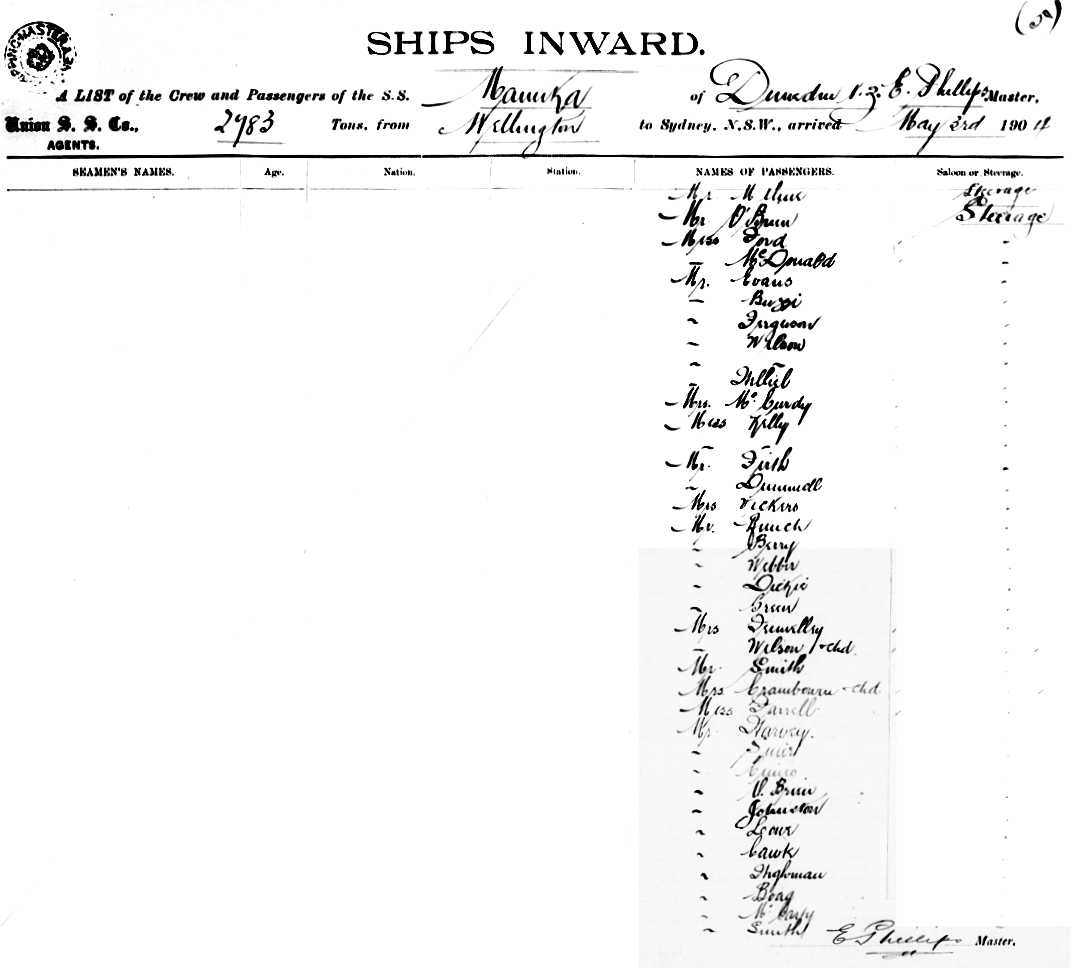 (29)
SHIPS INWARD.
A LIST of the Crew and Passengers of the S.S. Manuka of Dunedin N.Z. E. Phillips Master,
Union S. S. Co., 2983 Tons, from Wellington to Sydney, N.S.W., arrived May 3rd 1904
AGENTS.
SEAMEN'S NAMES. Age. Nation. Station. NAMES OF PASSENGERS. Saloon or Steerage.
Mr Steerage
Mr O'Brien Steerage
Miss Ford "
" McDonald "
Mr. Evans "
" Buzzi "
" Ferguson "
" Wilson "
"
"
Mrs. McCurdy "
Miss Kelly "
Mr. Firth "
" Dummell "
Mrs Vickers "
Mr. "
" Berry "
" Webber "
" Dickie "
" Green "
Mrs "
" Wilson + chd. "
Mr. Smith "
Mrs Crambourn + chd "
Miss Farrell "
Mr. Harvey. "
"
"
" O'Brien "
" Johnston "
" Lowe "
" Cawk "
"
" Boag "
" Mc
" Smith E. Phillips Master.